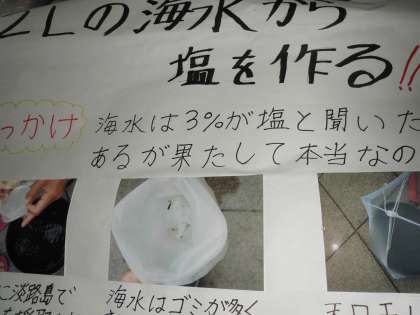 2Lの海水から
塩を作る!!
っかけ
海水は3%が塩と聞いた
あるが果たして本当なの
に淡路島で
海水はゴミが多く